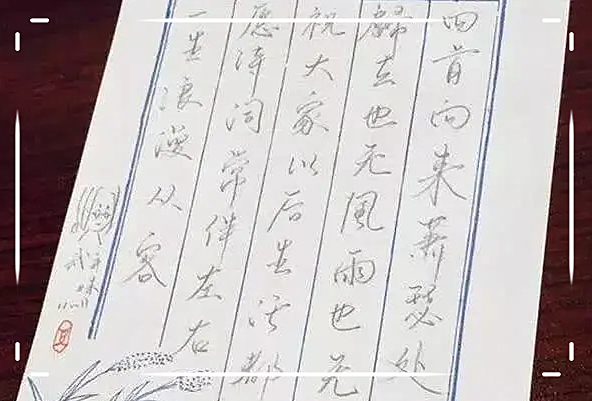 回首向来萧瑟处
歸去也无風雨也无
祝大家以后生活都
愿诗词常伴左右
一生浪漫从容
武亦姝